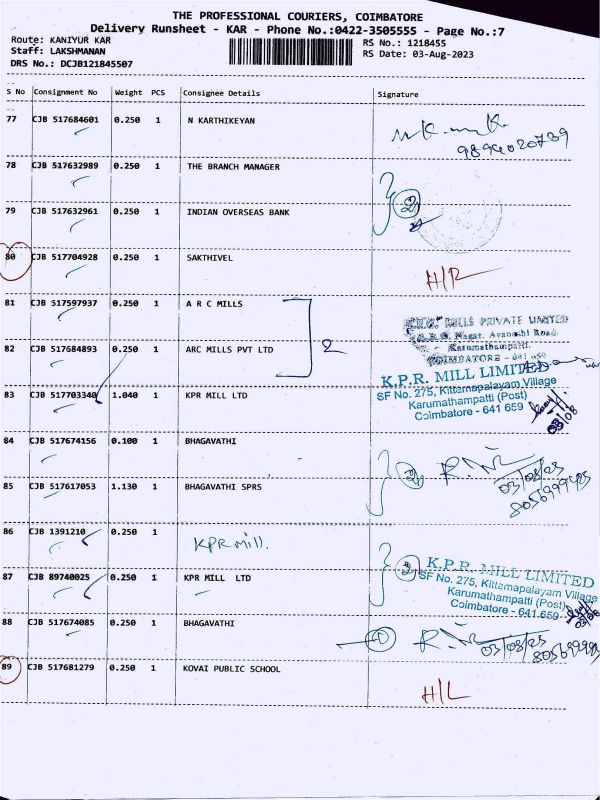 THE PROFESSIONAL COURIERS, COIMBATORE
Delivery Runsheet - KAR - Phone No.:0422-3505555 - Page No.:7
Route: KANIYUR KAR
RS No.: 1218455
Staff: LAKSHMANAN
RS Date: 03-Aug-2023
DRS No.: DCJB121845507
S No Consignment No Weight PCS Consignee Details Signature
77 CJB 517684601 0.250 1 N KARTHIKEYAN
9894020739
78 CJB 517632989 0.250 1 THE BRANCH MANAGER
2
79 CJB 517632961 0.250 1 INDIAN OVERSEAS BANK
80 CJB 517704928 0.250 1 SAKTHIVEL
81 CJB 517597937 0.250 1 A R C MILLS
MILLS PRIVATE LIMITED
Nagar, Avanashi Road
82 CJB 517684893 0.250 1 ARC MILLS PVT LTD 2
Karumathampatti.
COIMBATORE - 641
K.P.R. MILL LIMITED
83 CJB 517703340 1.040 1 KPR MILL LTD
SF No. 275, Kittampalayam Village
Karumathampatti (Post)
Coimbatore - 641 659
03/08
84 CJB 517674156 0.100 1 BHAGAVATHI
2
03/08/23
85 CJB 517617053 1.130 1 BHAGAVATHI SPRS
86 CJB 1391210 0.250 1 KPR mill.
2 K.P.R. MILL LIMITED
87 CJB 89740025 0.250 1 KPR MILL LTD
SF No. 275, Kittampalayam Village
Karumathampatti (Post)
Coimbatore - 641 659
88 CJB 517674085 0.250 1 BHAGAVATHI
1
03/08/23
89 CJB 517681279 0.250 1 KOVAI PUBLIC SCHOOL
H/L